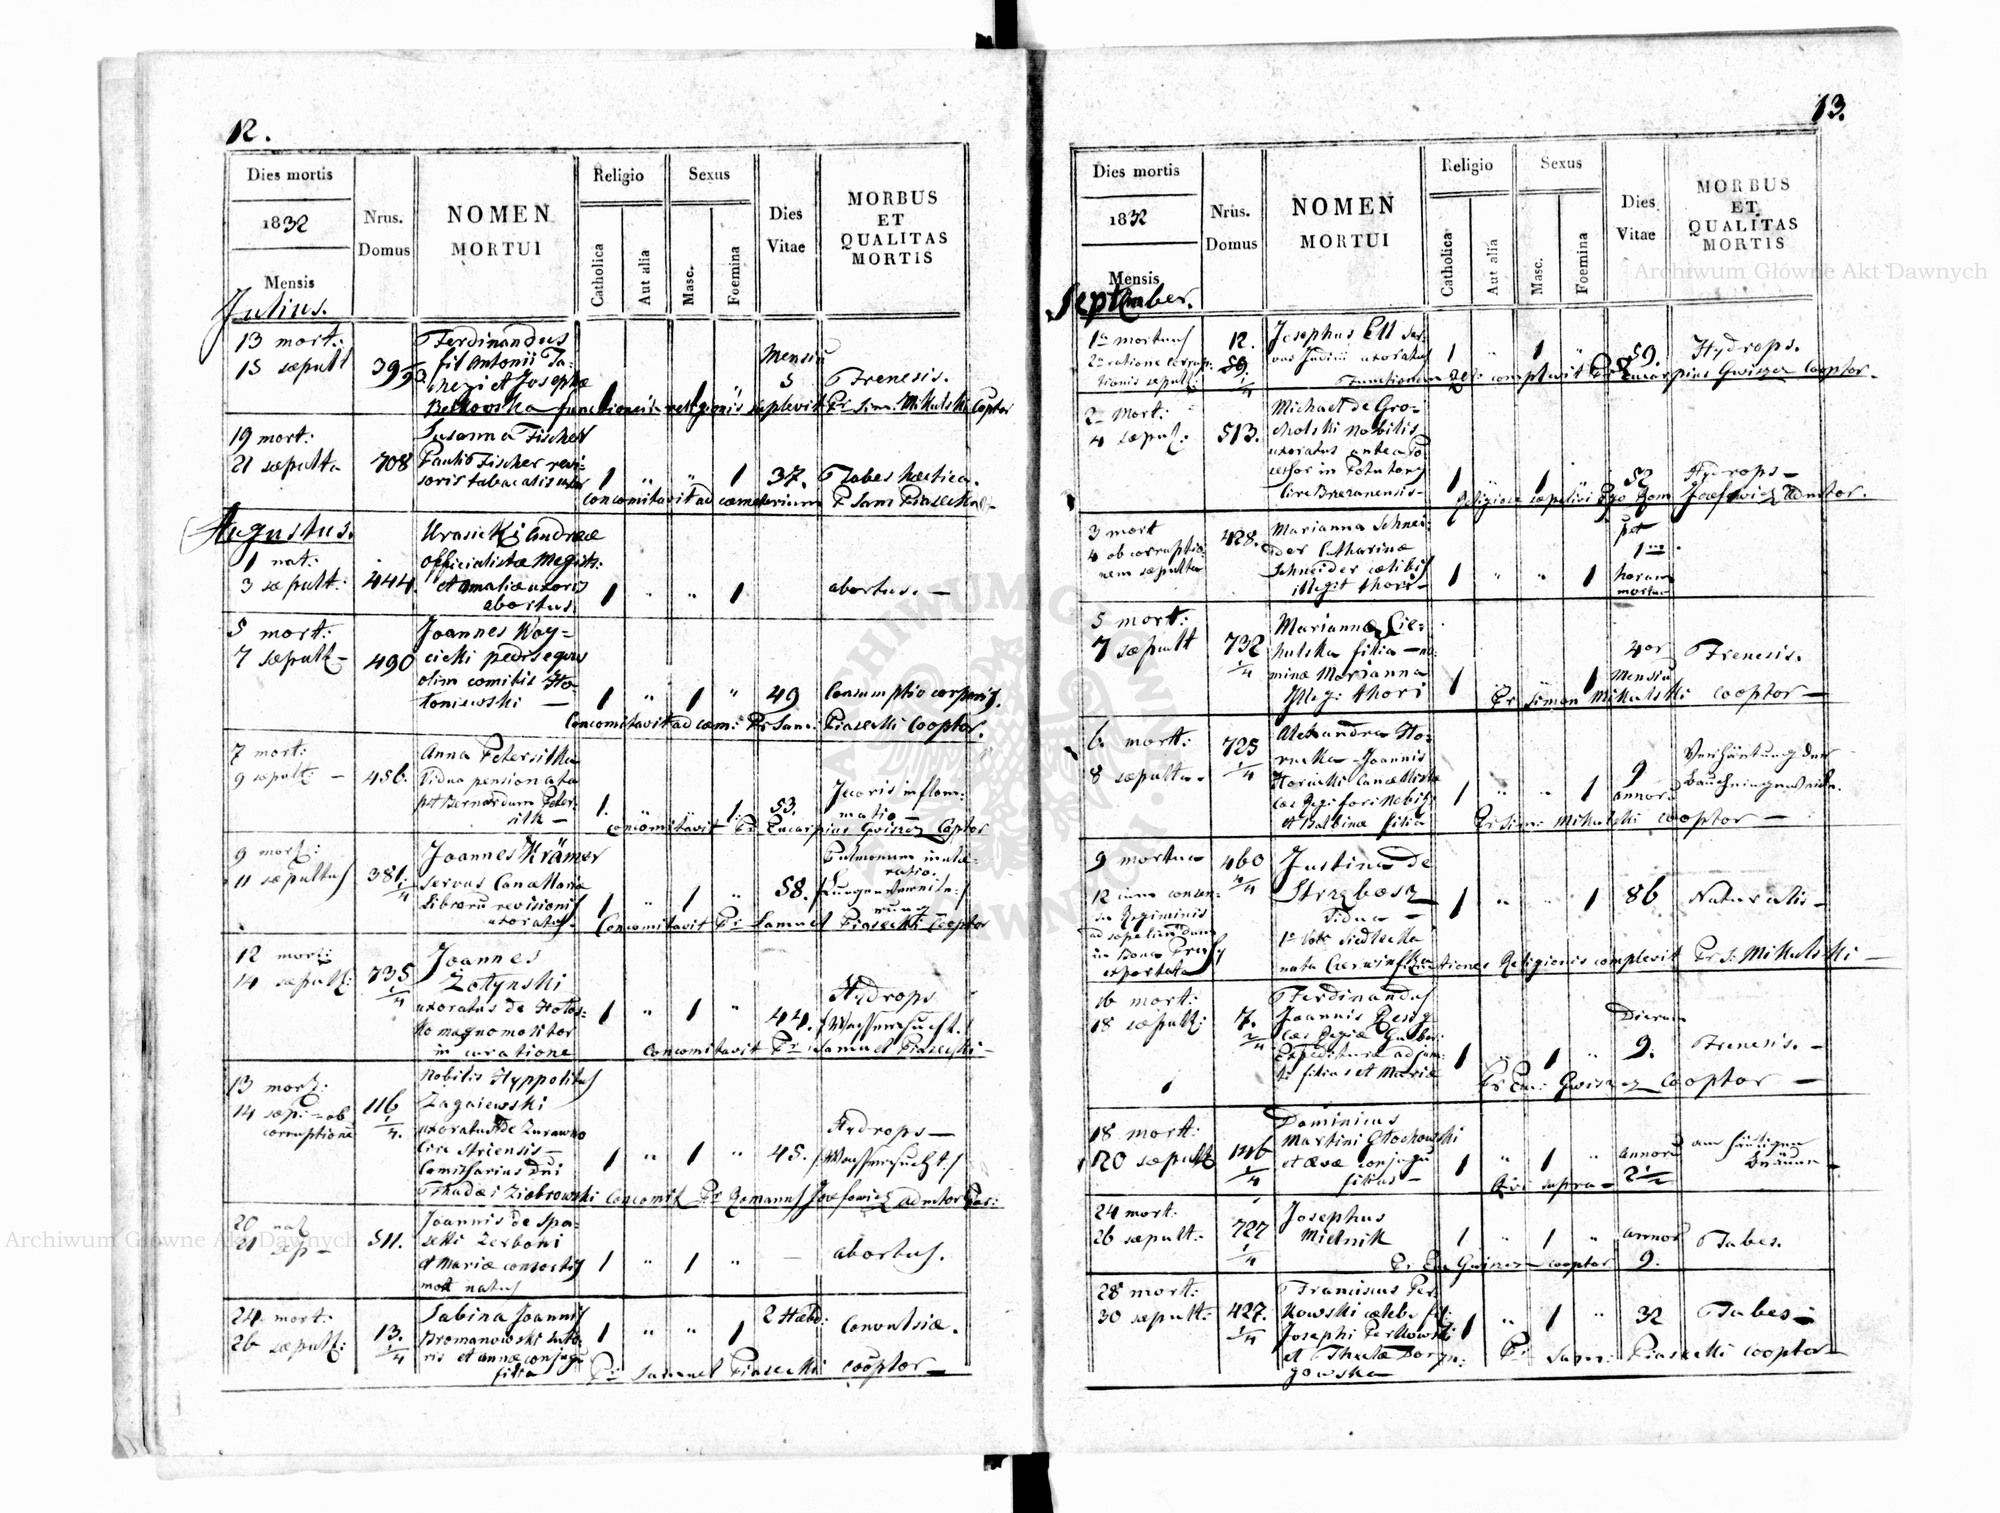 12.
Dies mortis
1832
Mensis
Nrus.
Domus
NOMEN
MORTUI
Religio
Catholica
Aut alia
Sexus
Masc.
Foemina
Dies
Vitae
MORBUS
ET
QUALITAS
MORTIS
Julius.
13 mort:
15 sepult
393
Ferdinandus
fil Antonii
et Josephæ
1 " 1 "
Mensiu
5
Frenesis.
functionem religionis explevit Pr Sim: Mikulski Cooptor
19 mort:
21 sepulta
708
Susanna Fischer
Pauli Fischer revi-
soris tabacalis uxor
1 " " 1
37.
Tabes hectica.
concomitavit ad cæmeterium P Sam Piasecki
Augustus.
1 nat:
3 sepult:
444.
Urasicki Andreæ
officialistæ Magistr:
et Amaliæ uxoris
abortus
1 " " 1
abortus. —
5 mort:
7 sepult —
490
Joannes Woy=
cicki
olim comitis Ho-
loniewski —
1 " 1 "
49
Consumptio corporis.
Concomitavit ad cæm: Pr Sam: Piasecki Cooptor.
7 mort:
9 sepult: —
456.
Anna Petersilka
Vidua pensionata
pst Bernardum Peter-
silk —
1. " " 1.
53.
Jecoris inflam:
matio —
concomitavit Pr Eucarpius Gwiszcz Cooptor
9 mort:
11 sepultus
381 1/4
Joannes Krämer
servus Cancellariæ
Librorũ revisionis
uxoratus.
1 " 1 "
58.
Pulmonum
Concomitavit Pr Samuel Piasecki Cooptor
12 mort:
14 sepult:
735 1/4
Joannes
Zotynski
uxoratus de Holos-
ko magno molitor
in curatione
1 " 1 "
44.
Hydrops
/Wassersucht./
Concomitavit Pr Samuel Piasecki —
13 mort:
14 sep: — ob
corruptione
116 1/4.
Nobilis Hyppolitus
Zagaiewski
uxoratus de Zurawno
Circ Striensis —
Comissarius Dni
Thadæi Ziobrowski
1 " 1 "
45.
Hydrops —
/Wassersucht/
Concomit Pr Romanus Josefowicz Admtor Par:
20 nat
21 sep —
511.
Joannis de Spa-
setti Zerboni
et Mariæ consortis
mort natus
1 " 1 "
—
abortus.
24 mort:
26 sepult:
13. 1/4
Sabina Joannis
Bromanowski suto-
ris et Annæ conjugũ
filia
1 " " 1
2 Hebd:
Convulsiæ.
Pr Samuel Piasecki cooptor —
13.
Dies mortis
1832
Mensis
Nrus.
Domus
NOMEN
MORTUI
Religio
Catholica
Aut alia
Sexus
Masc.
Foemina
Dies
Vitae
MORBUS
ET
QUALITAS
MORTIS
September.
1 mortuus
2 ratione corrup-
tionis sepult:
12.
59. 1/4
Josephus Ell ser-
vus Judicii uxoratus
1 " 1 "
59.
Hydrops.
Functionem Rel: complevit Pr Eucarpius Gwiszcz Cooptor.
2 Mort:
4 sepul:
513.
Michael de Gro-
cholski Nobilis
uxoratus antea Po-
cessor in Potutory
Circ Brezanensis —
1 " 1 "
52
Hydrops —
Religiose sepelivi Ego Rom Josefowicz Admtor.
3 mort
4 ob corruptio-
nem sepulta
428.
Marianna Schnei-
der Catharinæ
Schneider cælibis
illegit thori —
1 " " 1
pst
1
horam
mortua
5 mort:
7 sepult
732 1/4
Marianna
filia — no-
minæ Marianna
Illeg: thori
1 " " 1
4or
Mensiũ
Frenesis.
Pr Simon Mikulski cooptor —
6. mort:
8 sepulta.
725 1/4
Alexandra Ho-
rucka Joannis
Horucki Cancellistæ
Cæs Regi fori Nobil:
et Balbinæ filia
1 " " 1
9
annorũ
Verhärtung der
Baucheingeweide.
Pr Sim: Mikulski cooptor —
9 mortua
12 cum consen-
su Regiminis
ad sepeliendum
in Bona
exportata
460 2/4
Justina de
Strzębosz
Vidua —
1o Voto Siedlecka
nata Czerwinska
1 " " 1
86
Naturalis —
functiones Religionis complevit Pr S: Mikulski —
16 mort:
18 sepult:
7. 2/4
Ferdinandus
Joannis
Cæs Regiæ Guber:
Expedituræ adjun-
ti filius et Mariæ
1 " 1 "
Dierum
9.
Frenesis. —
Pr Eu: Gwiszcz cooptor —
18 mort:
20 sepult
1/4
Dominicus
Martini Głochowski
et Evæ conjugũ
filius —
1 " 1 "
annorũ
2 1/2
am häutigen
Bräune
Qui supra —
24 mort:
26 sepult:
727 1/4
Josephus
Mielnik
1 " 1 "
annorũ
9.
Tabes.
Pr Eu Gwiszcz cooptor
28 mort:
30 sepult:
427. 1/4
Franciscus Per-
kowski cælebs fil:
Josephi Perkowski
et Theclæ Dorp
gowska
1 " 1 "
32
Tabes —
Pr Sam: Piasecki cooptor —
Archiwum Główne Akt Dawnych
Archiwum Główne Akt Dawnych
ARCHIWUM GŁÓWNE AKT DAWNYCH